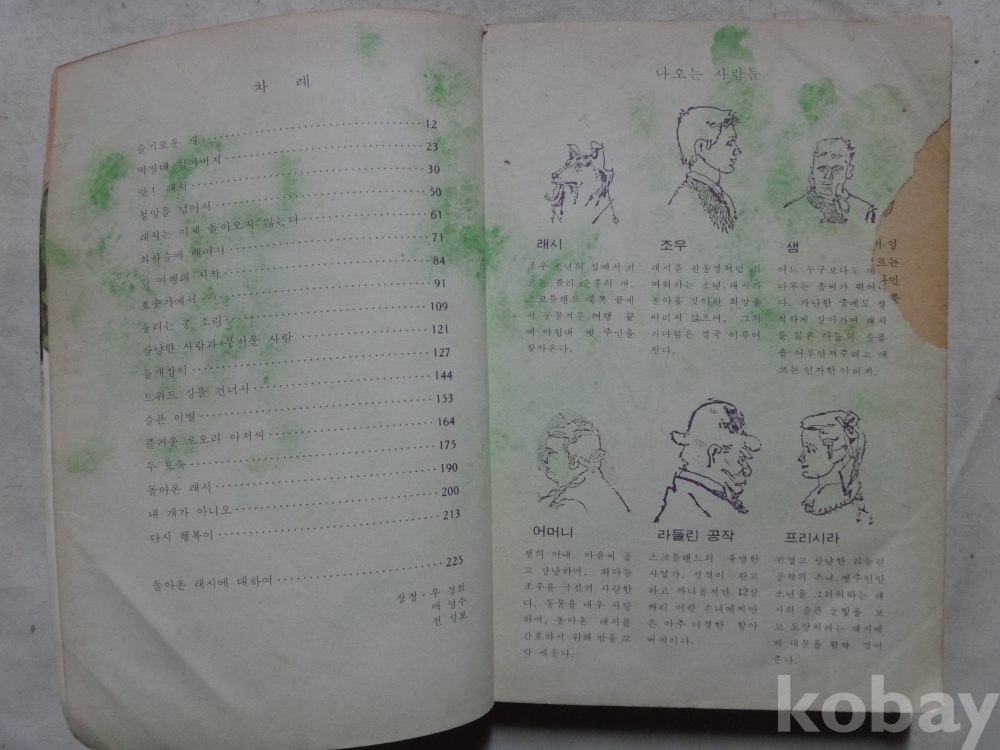 차 례
슬기로운 개 12
떡장대 할아버지 23
앗! 래시 30
철망을 넘어서 50
래시는 이제 돌아오지 않는다 61
쇠사슬에 매여서 71
긴 여행의 시작 84
호숫가에서 91
울리는 총 소리 109
상냥한 사람과 무서운 사람 121
들개잡이 127
트위드 강을 건너서 144
슬픈 이별 153
즐거운 로오리 아저씨 164
두 도둑 175
돌아온 래시 190
내 개가 아니오 200
다시 행복이 213
돌아온 래시에 대하여 225
장정·우 경희
백 영수
전 성보
나오는 사람들
래시
조우 소년의 집에서 기
르는 콜리 순종의 개.
스코틀랜드 북쪽 끝에
서 눈물겨운 여행 끝
에 마침내 옛 주인을
찾아온다.
조우
래시를 친동생처럼 귀
여워하는 소년. 래시가
돌아올 것이란 희망을
버리지 않으며, 그의
기다림은 결국 이루어
진다.
샘
어느 누구보다도 개
다루는 솜씨가 뛰어나
다. 가난한 중에도 정
직하게 살아가며 래시
를 잃은 아들의 슬픔
을 어루만져주려고 애
쓰는 인자한 아버지.
어머니
샘의 아내. 마음씨 곱
고 상냥하며, 외아들
조우를 극진히 사랑한
다. 동물을 매우 사랑
하며, 돌아온 래시를
간호하기 위해 밤을 꼬
박 세운다.
라들린 공작
스코틀랜드의 유명한
사업가. 성격이 완고
하고 까다롭지만 12살
짜리 어린 손녀에게만
은 아주 다정한 할아
버지이다.
프리시라
귀엽고 상냥한 라들린
공작의 손녀. 옛주인인
소년을 그리워하는 래
시의 슬픈 눈빛을 보
고 도망치려는 래시에
게 대문을 활짝 열어
준다.
kobay